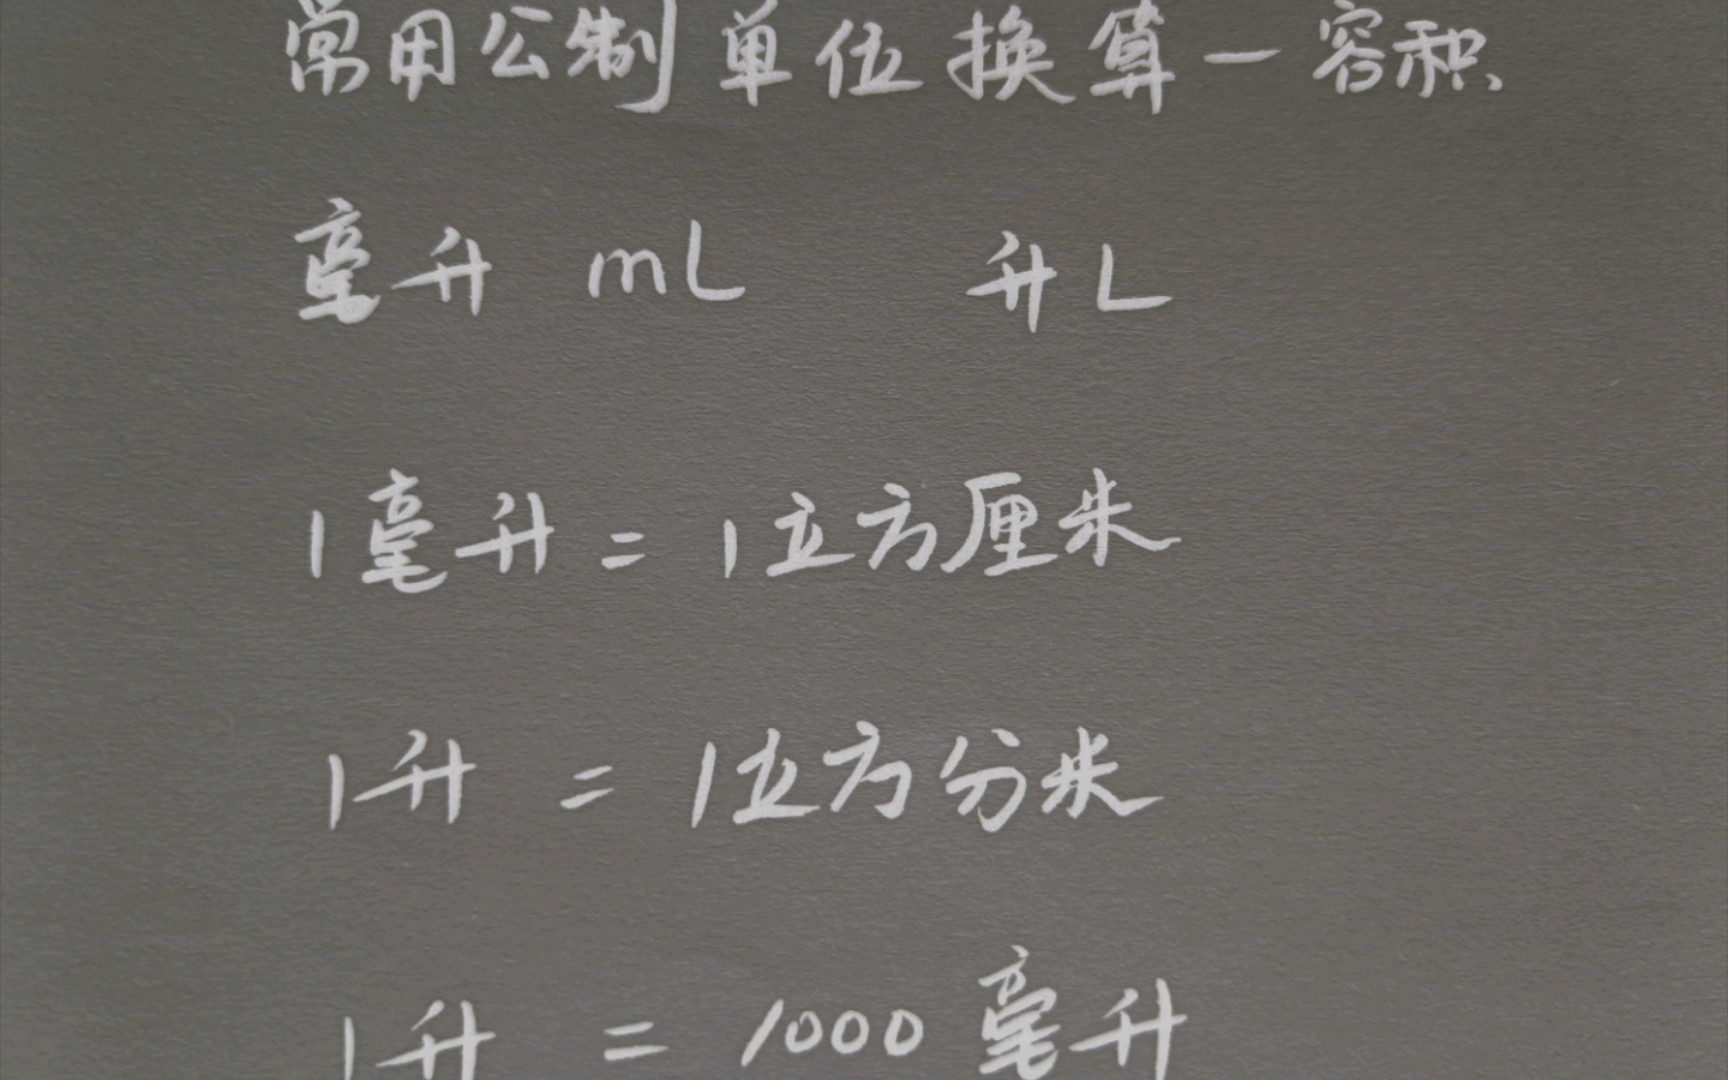 常用公制单位换算一容积
毫升 mL 升 L
1毫升 = 1立方厘米
1升 = 1立方分米
1升 = 1000 毫升